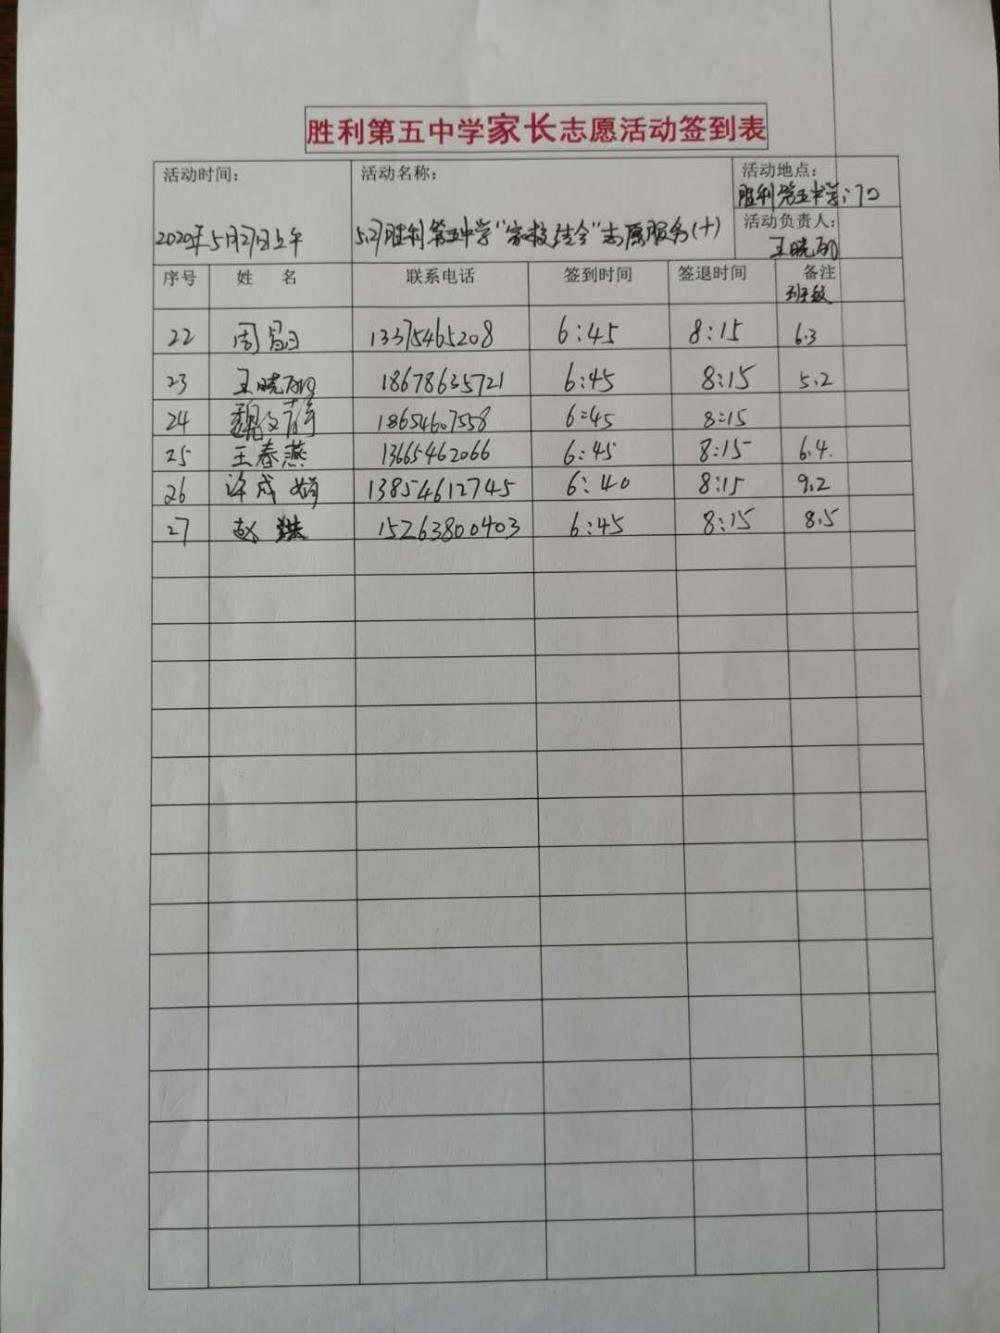 胜利第五中学家长志愿活动签到表
活动时间： 活动名称： 活动地点：
胜利第五中学门口
2020年5月27日上午 5.27胜利第五中学“家校结合”志愿服务(十) 活动负责人：
王晓丽
序号 姓 名 联系电话 签到时间 签退时间 备注
班级
22 周 13375465208 6:45 8:15 6.3
23 王晓丽 18678635721 6:45 8:15 5.2
24 魏文静 18654607558 6:45 8:15
25 王春燕 13665462066 6:45 8:15 6.4.
26 许成娟 13854612745 6:40 8:15 9.2
27 赵 15263800403 6:45 8:15 8.5